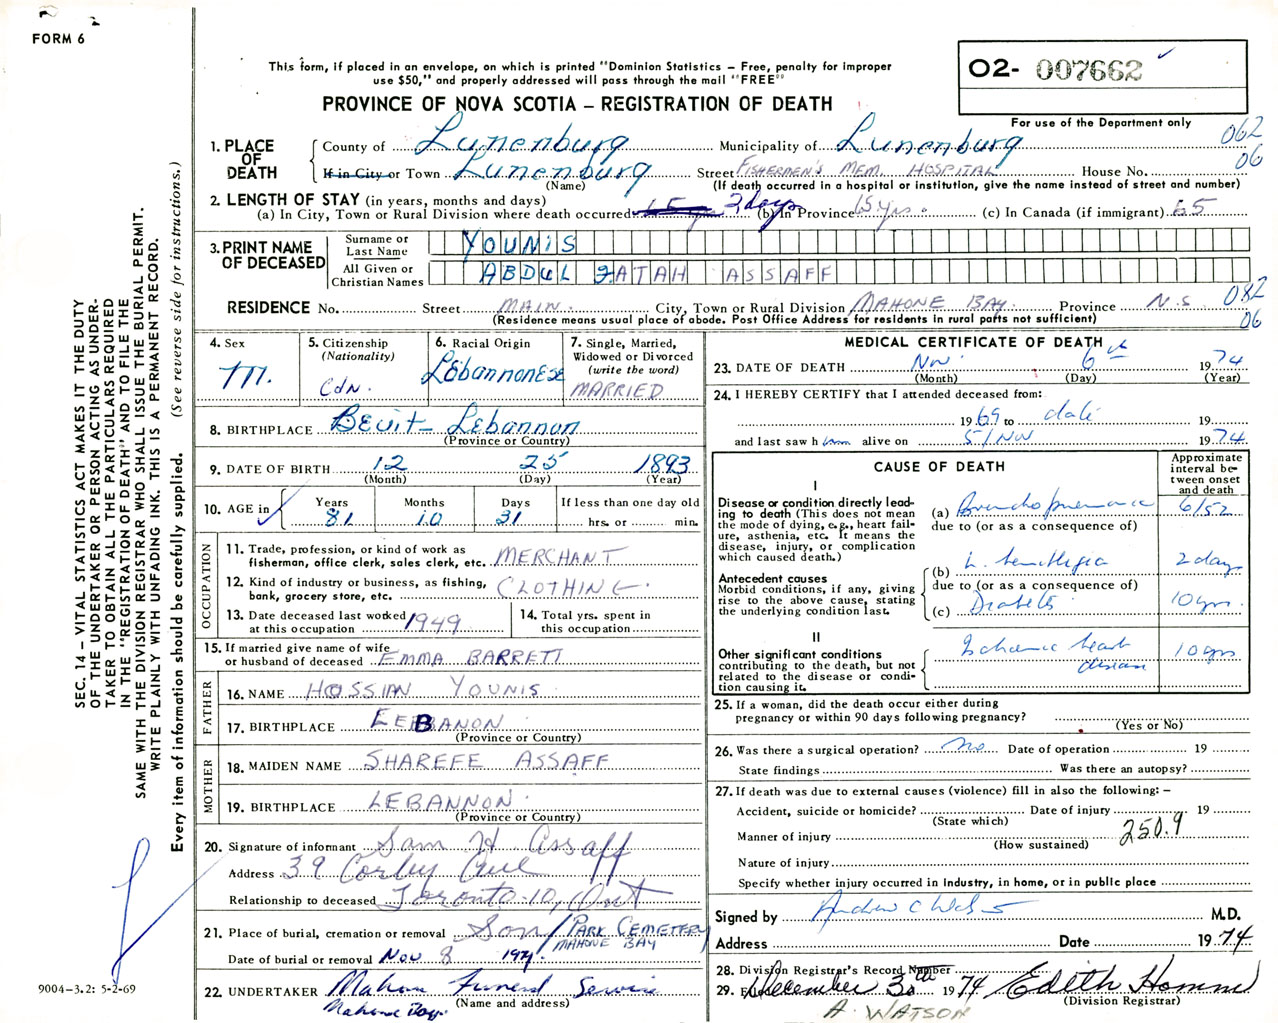 FORM 6
This form, if placed in an envelope, on which is printed "Dominion Statistics – Free, penalty for improper
use $50," and properly addressed will pass through the mail "FREE"
PROVINCE OF NOVA SCOTIA – REGISTRATION OF DEATH
02- 007662
For use of the Department only
1. PLACE OF DEATH
County of Lunenburg Municipality of Lunenburg 062
If in City or Town Lunenburg Street FISHERMEN'S MEM. HOSPITAL House No. 06
(Name) (If death occurred in a hospital or institution, give the name instead of street and number)
2. LENGTH OF STAY (in years, months and days)
(a) In City, Town or Rural Division where death occurred 2 days (b) In Province 65 yrs. (c) In Canada (if immigrant) 65
3. PRINT NAME OF DECEASED
Surname or Last Name YOUNIS
All Given or Christian Names ABDUL FATAH ASSAFF
RESIDENCE No. Street MAIN City, Town or Rural Division MAHONE BAY Province N.S 082
(Residence means usual place of abode. Post Office Address for residents in rural parts not sufficient) 06
4. Sex M.
5. Citizenship (Nationality) CdN.
6. Racial Origin Lebannonese
7. Single, Married, Widowed or Divorced (write the word) MARRIED
8. BIRTHPLACE Beuit- Lebannan
(Province or Country)
9. DATE OF BIRTH 12 25 1893
(Month) (Day) (Year)
10. AGE in Years 81 Months 10 Days 31
If less than one day old hrs. or min.
OCCUPATION
11. Trade, profession, or kind of work as fisherman, office clerk, sales clerk, etc. MERCHANT
12. Kind of industry or business, as fishing, bank, grocery store, etc. CLOTHING.
13. Date deceased last worked at this occupation 1949
14. Total yrs. spent in this occupation
15. If married give name of wife or husband of deceased EMMA BARRETT
FATHER
16. NAME HOSSIAN YOUNIS
17. BIRTHPLACE LEBANON
(Province or Country)
MOTHER
18. MAIDEN NAME SHAREFE ASSAFF
19. BIRTHPLACE LEBANNON
(Province or Country)
20. Signature of informant Sam H Assaff
Address 39 Corley Ave
Toronto-10, Ont
Relationship to deceased Son
21. Place of burial, cremation or removal PARK CEMETERY
MAHONE BAY
Date of burial or removal Nov 8 1974
22. UNDERTAKER Mahone Funeral Service
(Name and address)
Mahone Bay
MEDICAL CERTIFICATE OF DEATH
23. DATE OF DEATH Nov 6th 1974
(Month) (Day) (Year)
24. I HEREBY CERTIFY that I attended deceased from:
1969 to date 19
and last saw him alive on 5/Nov 1974
CAUSE OF DEATH
Approximate interval between onset and death
I
Disease or condition directly leading to death (This does not mean the mode of dying, e.g., heart failure, asthenia, etc. It means the disease, injury, or complication which caused death.)
(a) Bronchopneumonia 6/52
due to (or as a consequence of)
Antecedent causes
Morbid conditions, if any, giving rise to the above cause, stating the underlying condition last.
(b) L. hemiplegia 2 days
due to (or as a consequence of)
(c) Diabetes 10 yrs.
II
Other significant conditions contributing to the death, but not related to the disease or condition causing it.
Ischaemic heart disease 10 yrs
25. If a woman, did the death occur either during pregnancy or within 90 days following pregnancy?
(Yes or No)
26. Was there a surgical operation? no Date of operation 19
State findings Was there an autopsy?
27. If death was due to external causes (violence) fill in also the following: –
Accident, suicide or homicide? Date of injury 19
(State which)
Manner of injury 250.9
(How sustained)
Nature of injury
Specify whether injury occurred in Industry, in home, or in public place
Signed by M.D.
Address Date 1974
28. Division Registrar's Record Number
29. December 30th 1974 Edith
(Division Registrar)
A. WATSON
SEC. 14 – VITAL STATISTICS ACT MAKES IT THE DUTY
OF THE UNDERTAKER OR PERSON ACTING AS UNDER-
TAKER TO OBTAIN ALL THE PARTICULARS REQUIRED
IN THE "REGISTRATION OF DEATH" AND TO FILE THE
SAME WITH THE DIVISION REGISTRAR WHO SHALL ISSUE THE BURIAL PERMIT.
WRITE PLAINLY WITH UNFADING INK. THIS IS A PERMANENT RECORD.
Every item of information should be carefully supplied. (See reverse side for instructions.)
9004-3.2: 5-2-69